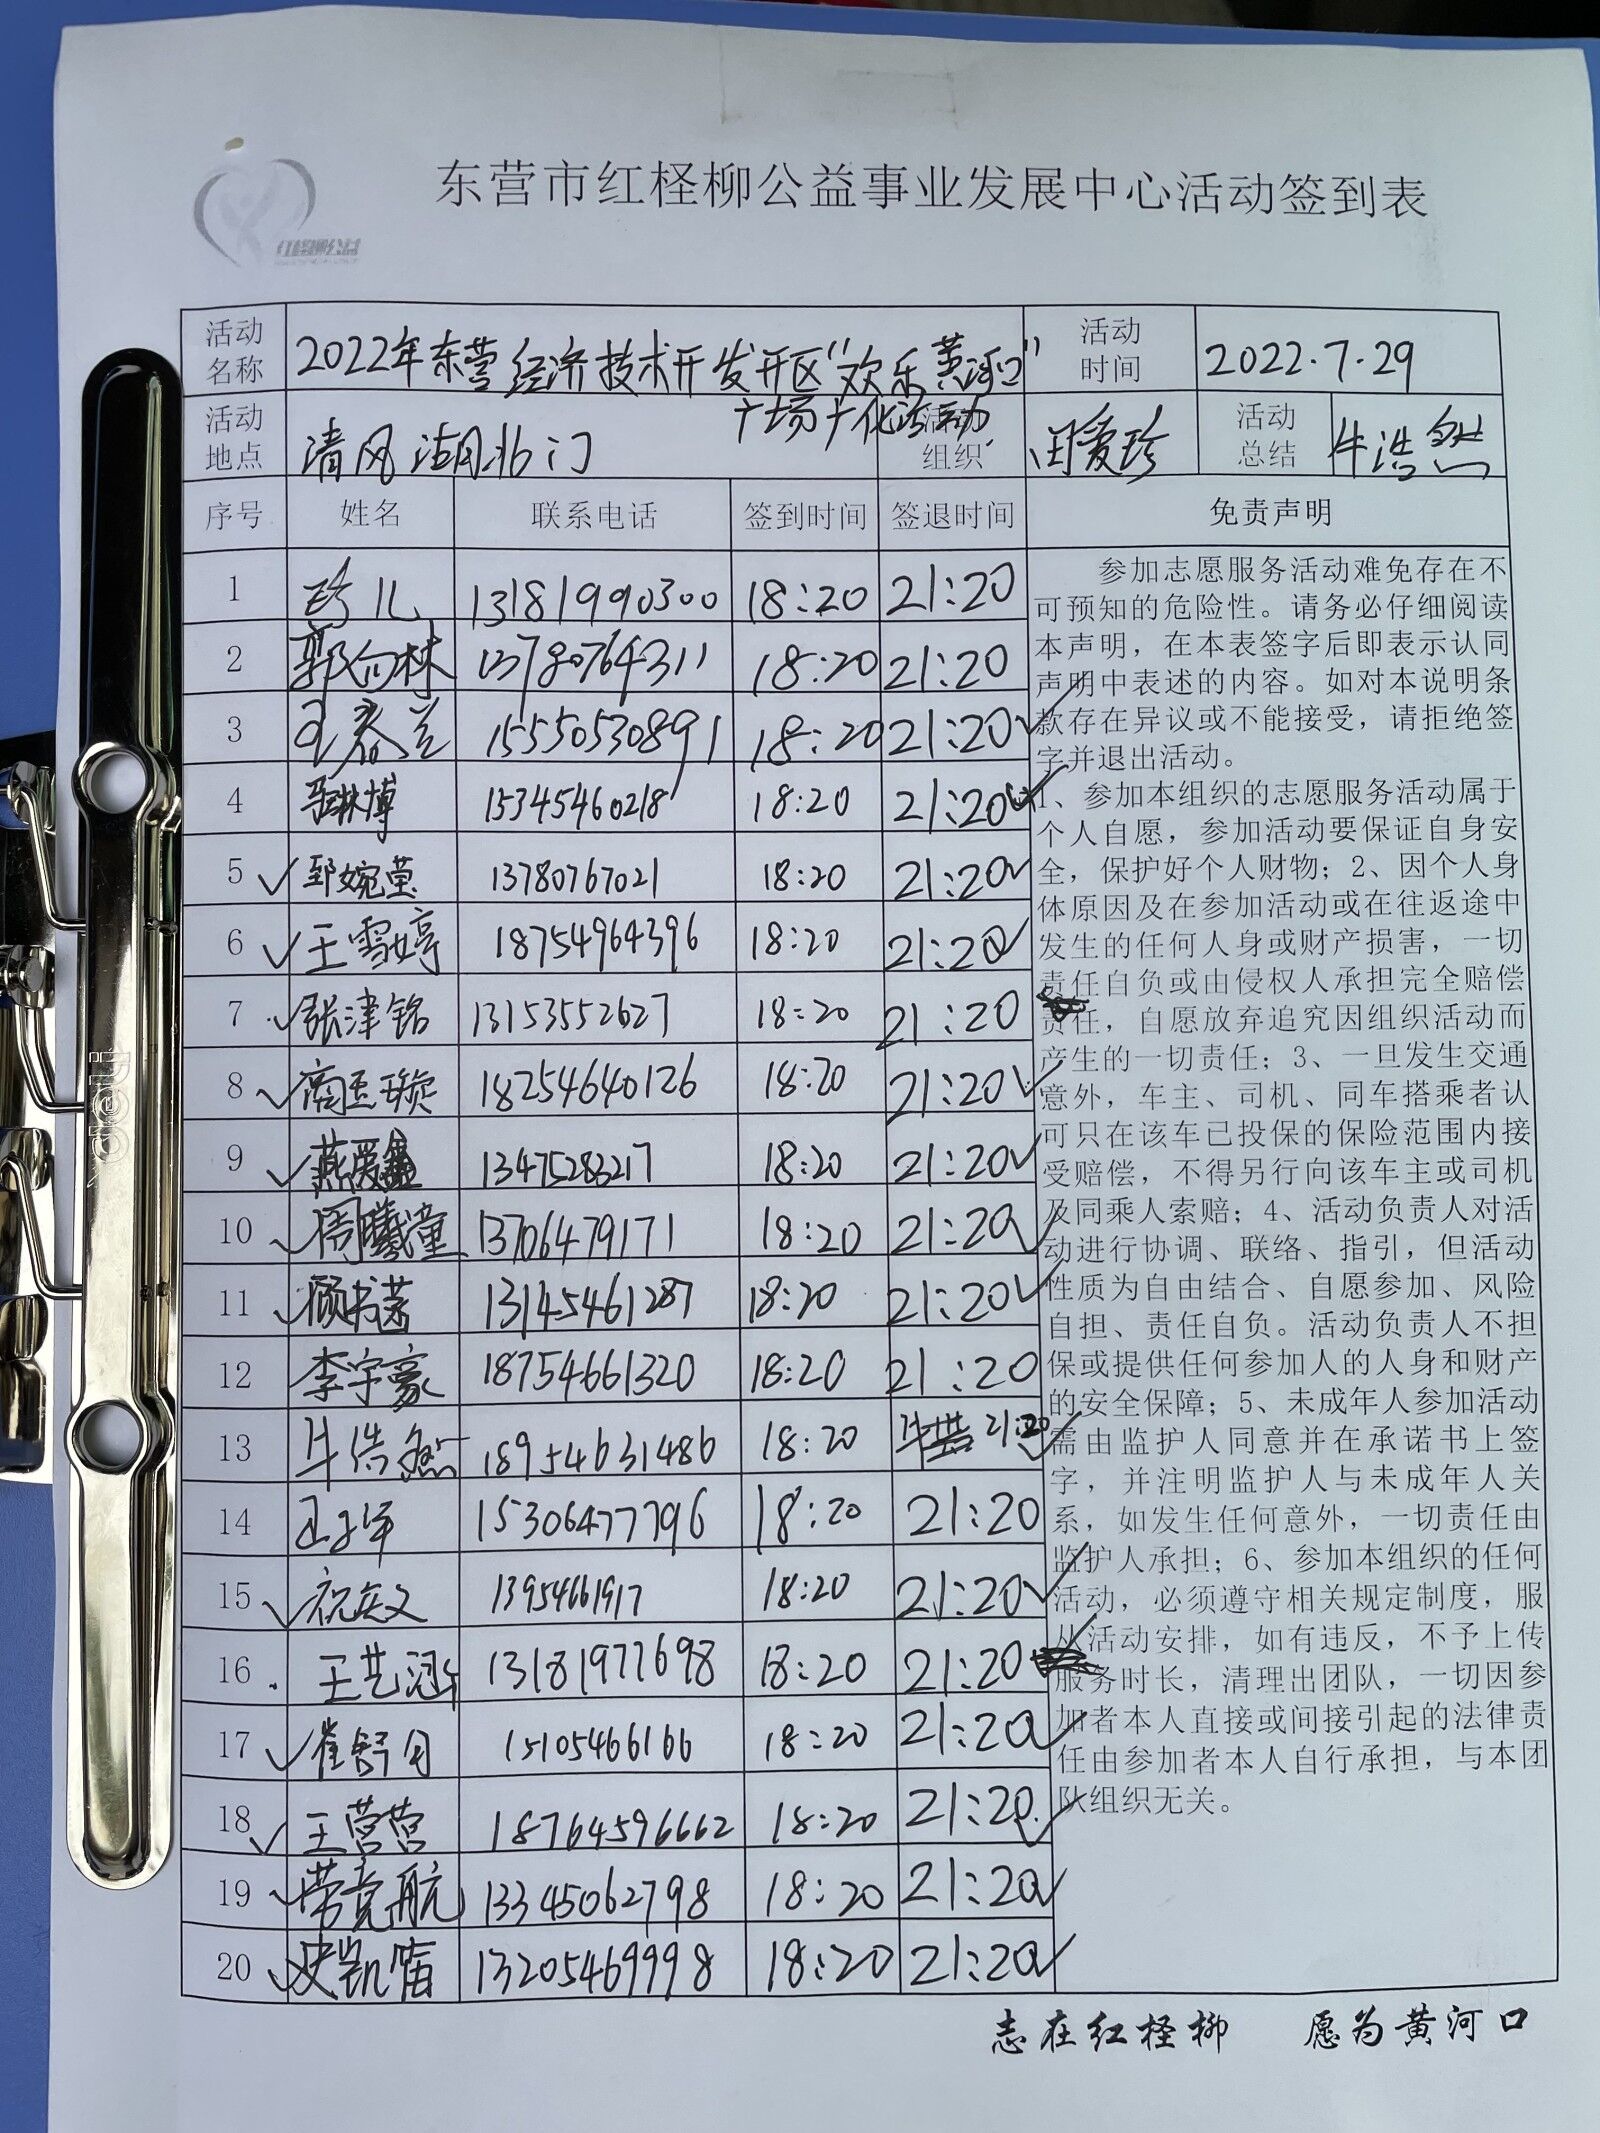 东营市红柽柳公益事业发展中心活动签到表
红柽柳公益
活动名称 2022年东营经济技术开发开区"欢乐黄河口"广场文化活动 活动时间 2022.7.29
活动地点 清风湖北门 活动组织 田爱珍 活动总结 牛浩然
序号 姓名 联系电话 签到时间 签退时间 免责声明
1 珍儿 13181990300 18:20 21:20
2 郭向林 13780764311 18:20 21:20
3 王春兰 15550530891 18:20 21:20
4 15345460218 18:20 21:20
5 郅婉莹 13780767021 18:20 21:20
6 王雪婷 18754964396 18:20 21:20
7 张津铭 13153552627 18:20 21:20
8 商玉璇 18254640126 18:20 21:20
9 13475283217 18:20 21:20
10 周曦潼 13706479171 18:20 21:20
11 顾书菡 13145461287 18:20 21:20
12 李宇豪 18754661320 18:20 21:20
13 牛浩然 18954631486 18:20 21:20
14 15306477796 18:20 21:20
15 祝庆文 13954661917 18:20 21:20
16 王艺涵 13181977698 18:20 21:20
17 崔舒月 15105466166 18:20 21:20
18 王营营 18764596662 18:20 21:20
19 荣竞航 13345062798 18:20 21:20
20 史凯雷 13205469998 18:20 21:20
参加志愿服务活动难免存在不
可预知的危险性。请务必仔细阅读
本声明，在本表签字后即表示认同
声明中表述的内容。如对本说明条
款存在异议或不能接受，请拒绝签
字并退出活动。
1、参加本组织的志愿服务活动属于
个人自愿，参加活动要保证自身安
全，保护好个人财物；2、因个人身
体原因及在参加活动或在往返途中
发生的任何人身或财产损害，一切
责任自负或由侵权人承担完全赔偿
责任，自愿放弃追究因组织活动而
产生的一切责任；3、一旦发生交通
意外，车主、司机、同车搭乘者认
可只在该车已投保的保险范围内接
受赔偿，不得另行向该车主或司机
及同乘人索赔；4、活动负责人对活
动进行协调、联络、指引，但活动
性质为自由结合、自愿参加、风险
自担、责任自负。活动负责人不担
保或提供任何参加人的人身和财产
的安全保障；5、未成年人参加活动
需由监护人同意并在承诺书上签
字，并注明监护人与未成年人关
系，如发生任何意外，一切责任由
监护人承担；6、参加本组织的任何
活动，必须遵守相关规定制度，服
从活动安排，如有违反，不予上传
服务时长，清理出团队，一切因参
加者本人直接或间接引起的法律责
任由参加者本人自行承担，与本团
队组织无关。
志在红柽柳 愿为黄河口